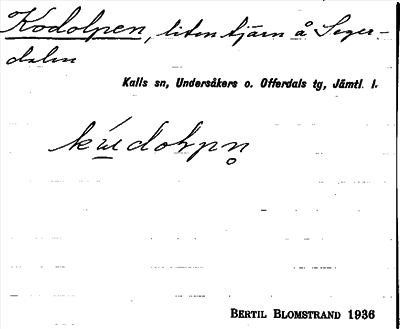 Kodolpen, liten tjärn å Seger-
dalen
Kalls sn, Undersåkers o. Offerdals tg, Jämtl. l.
BERTIL BLOMSTRAND 1936